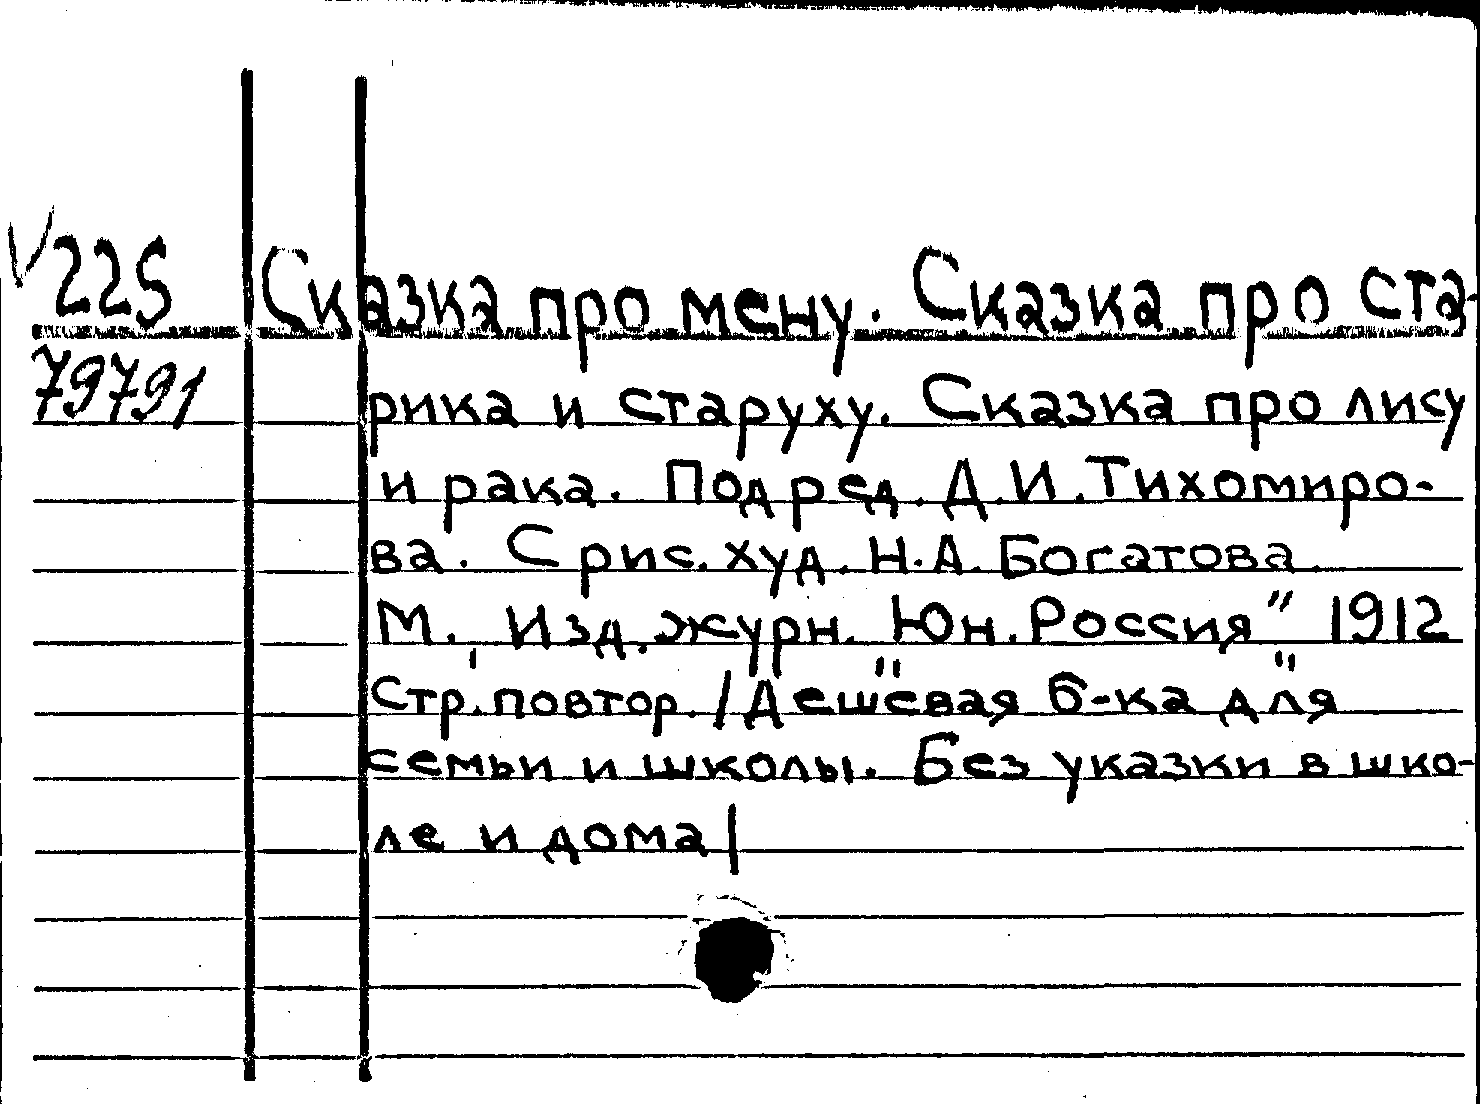 √225 Сказка про мену. Сказка про ста-
79791 рика и старуху. Сказка про лису
и рака. Под ред. Д.И.Тихомиро-
ва. С рис. худ. Н.А. Богатова.
М. Изд. журн. Юн. Россия" 1912
Стр. повтор. /Дешёвая б-ка для
семьи и школы. Без указки в шко-
ле и дома/